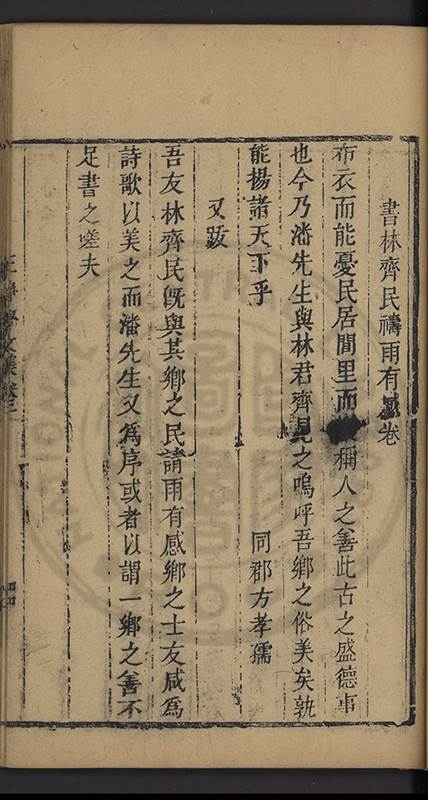 書林齊民禱雨有感卷
布衣而能憂民居閭里而稱人之善此古之盛德事
也今乃潘先生與林君齊見之嗚呼吾鄉之俗美矣孰
能揚諸天下乎
同郡方孝孺
又跋
吾友林齊民旣與其鄉之民請雨有感鄉之士友咸爲
詩歌以美之而潘先生又爲序或者以謂一鄉之善不
足書之嗟夫